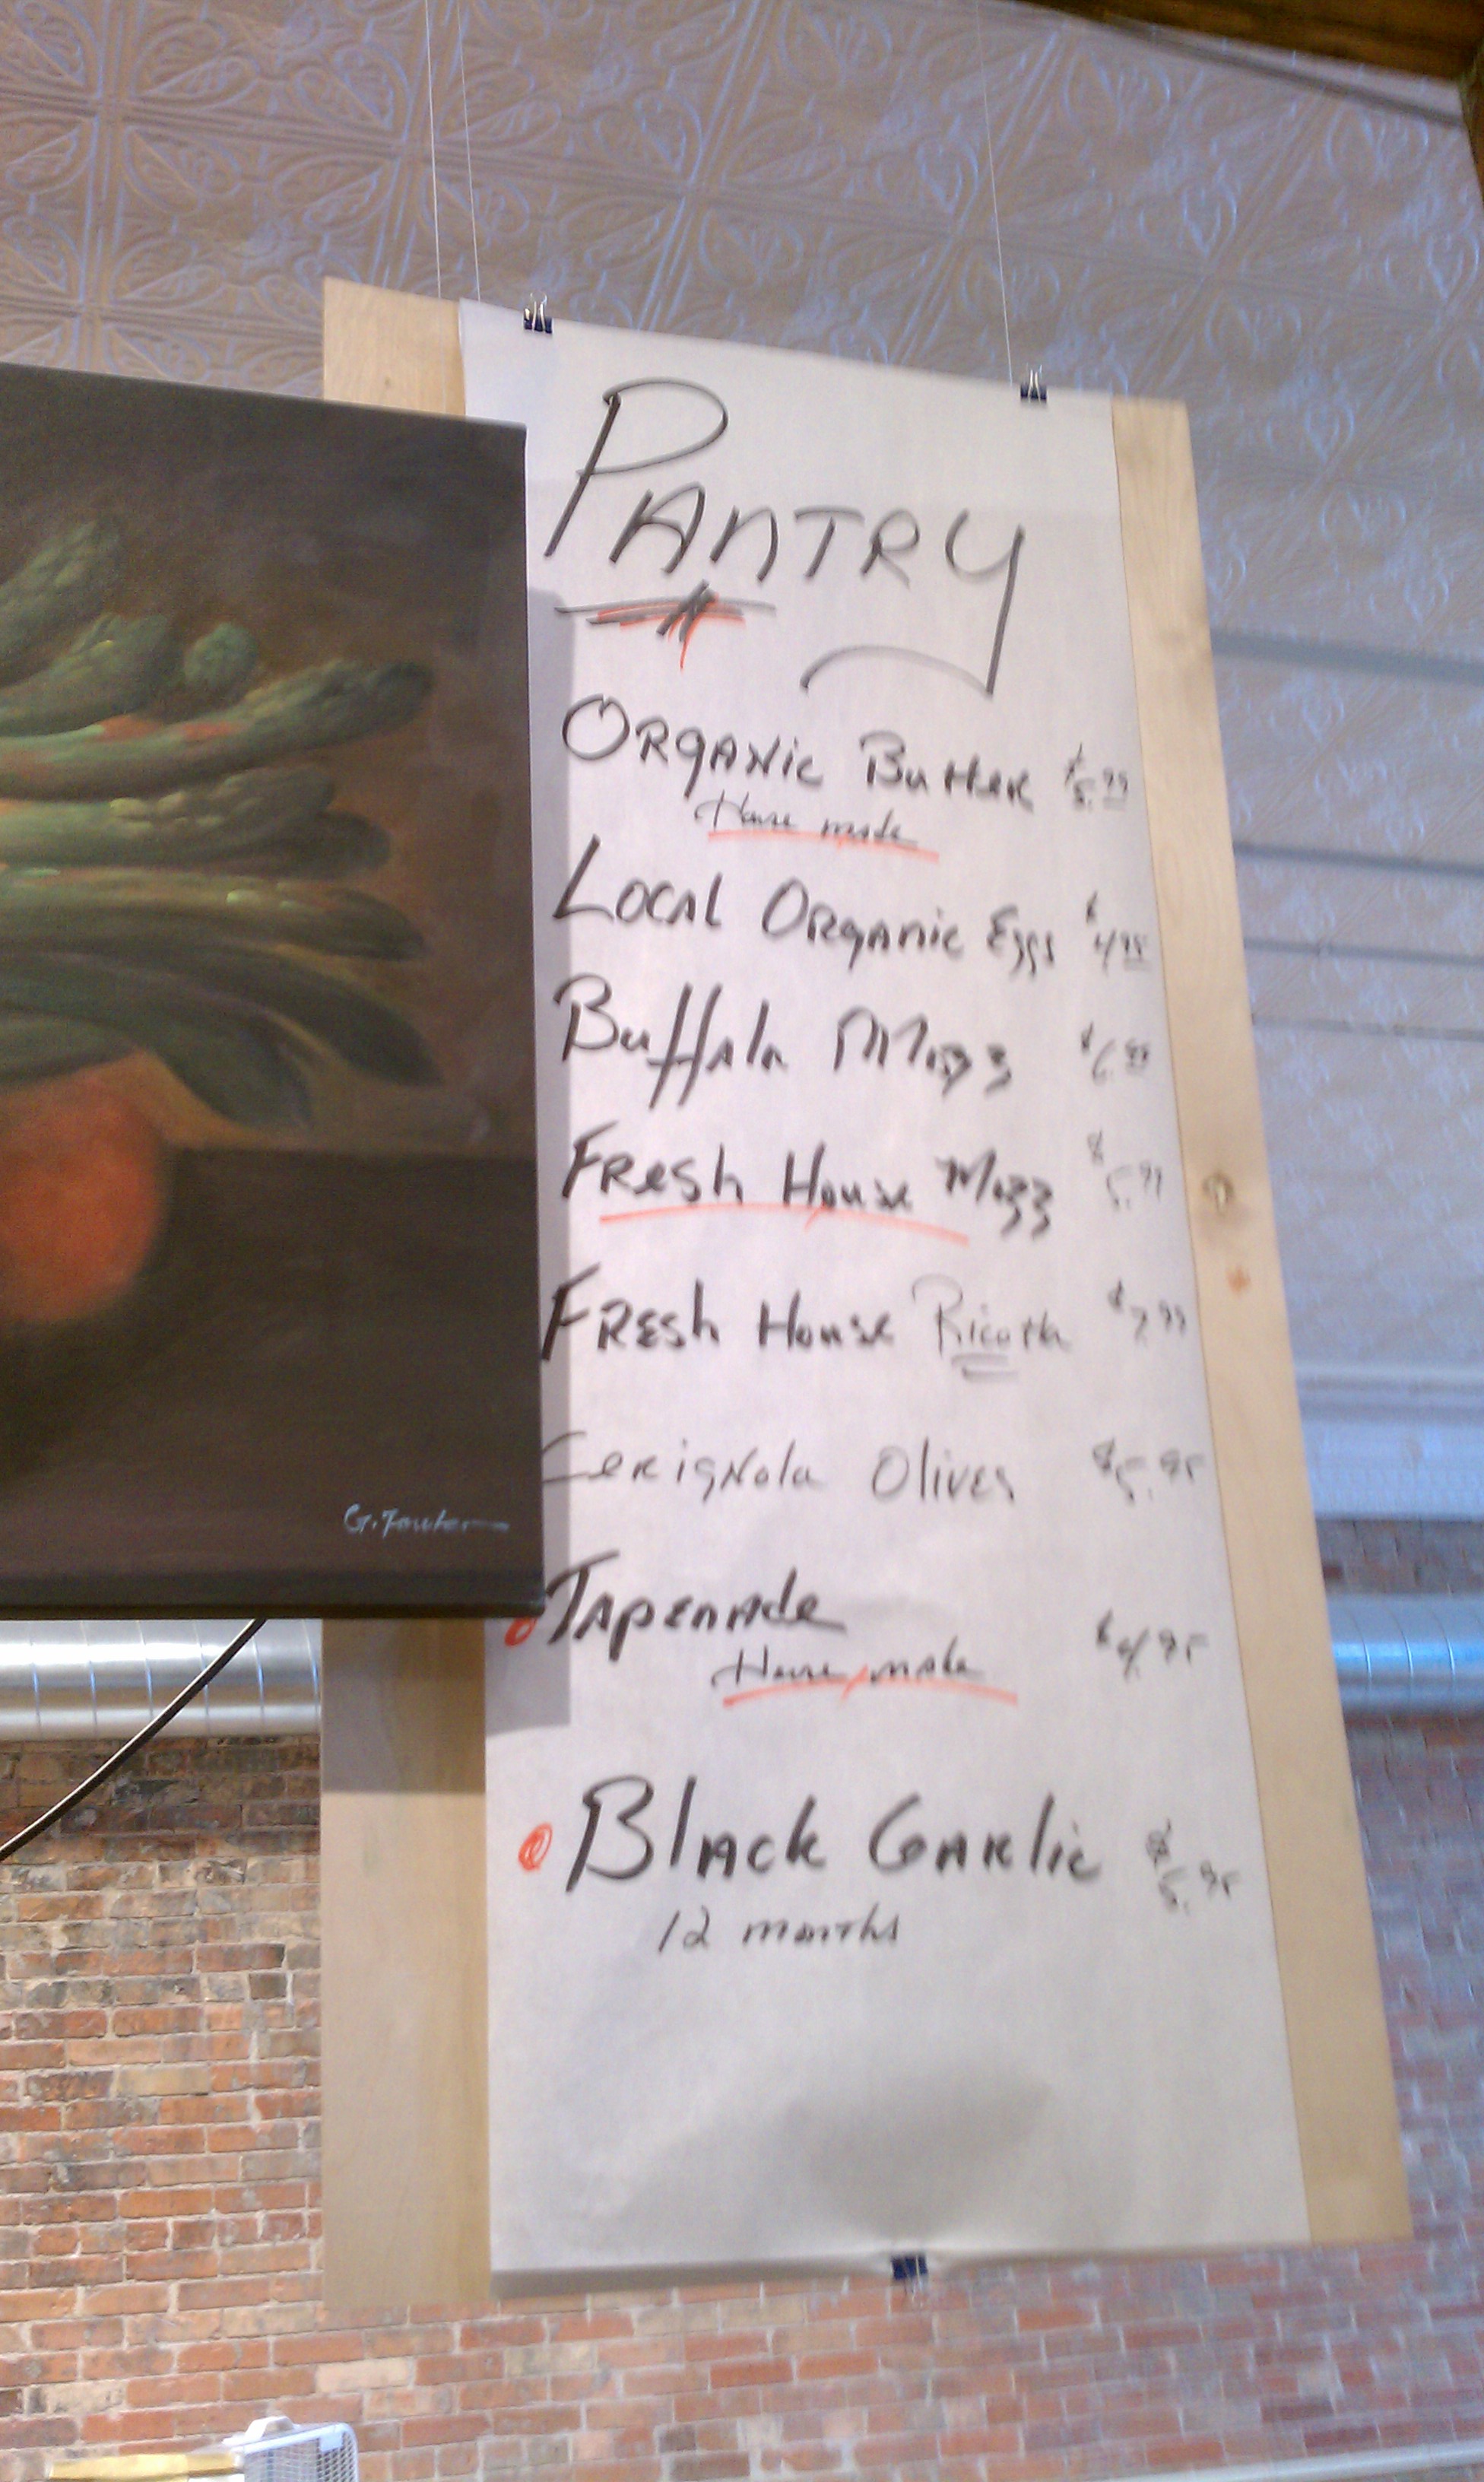 PANTRY
ORGANic Butter $5.99
House made
LOCAL ORGANic Eggs $4.95
Buffala Mozz $6.99
FResh House Mozz $5.99
FRESh House Ricotta $7.99
CeRigNola Olives $5.95
TApenade
House made $4.95
BlAck GARlic $6.95
12 months
G. Fowler